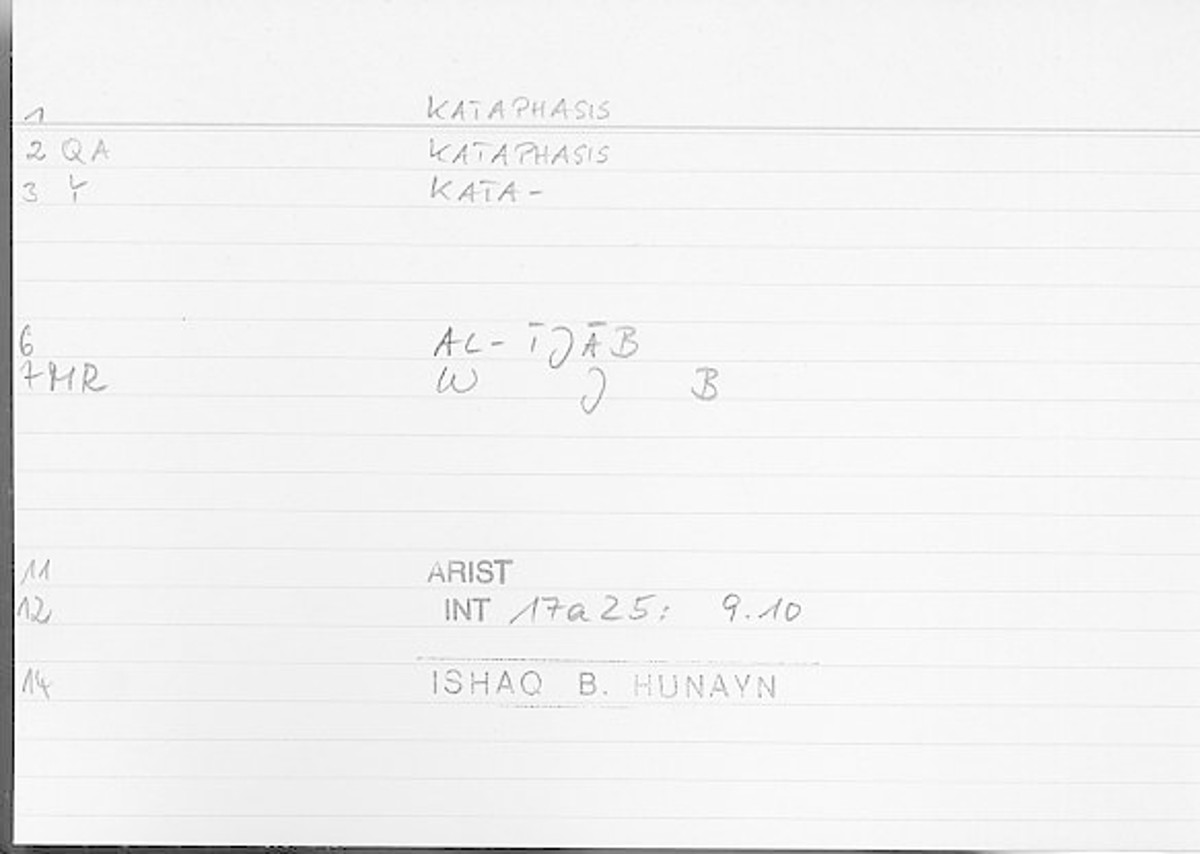 1 KATAPHASIS
2 QA KATAPHASIS
3 Y KATA-
6 AL-ĪJĀB
7 MR W J B
11 ARIST
12 INT 17a25: 9.10
14 ISHAQ B. HUNAYN